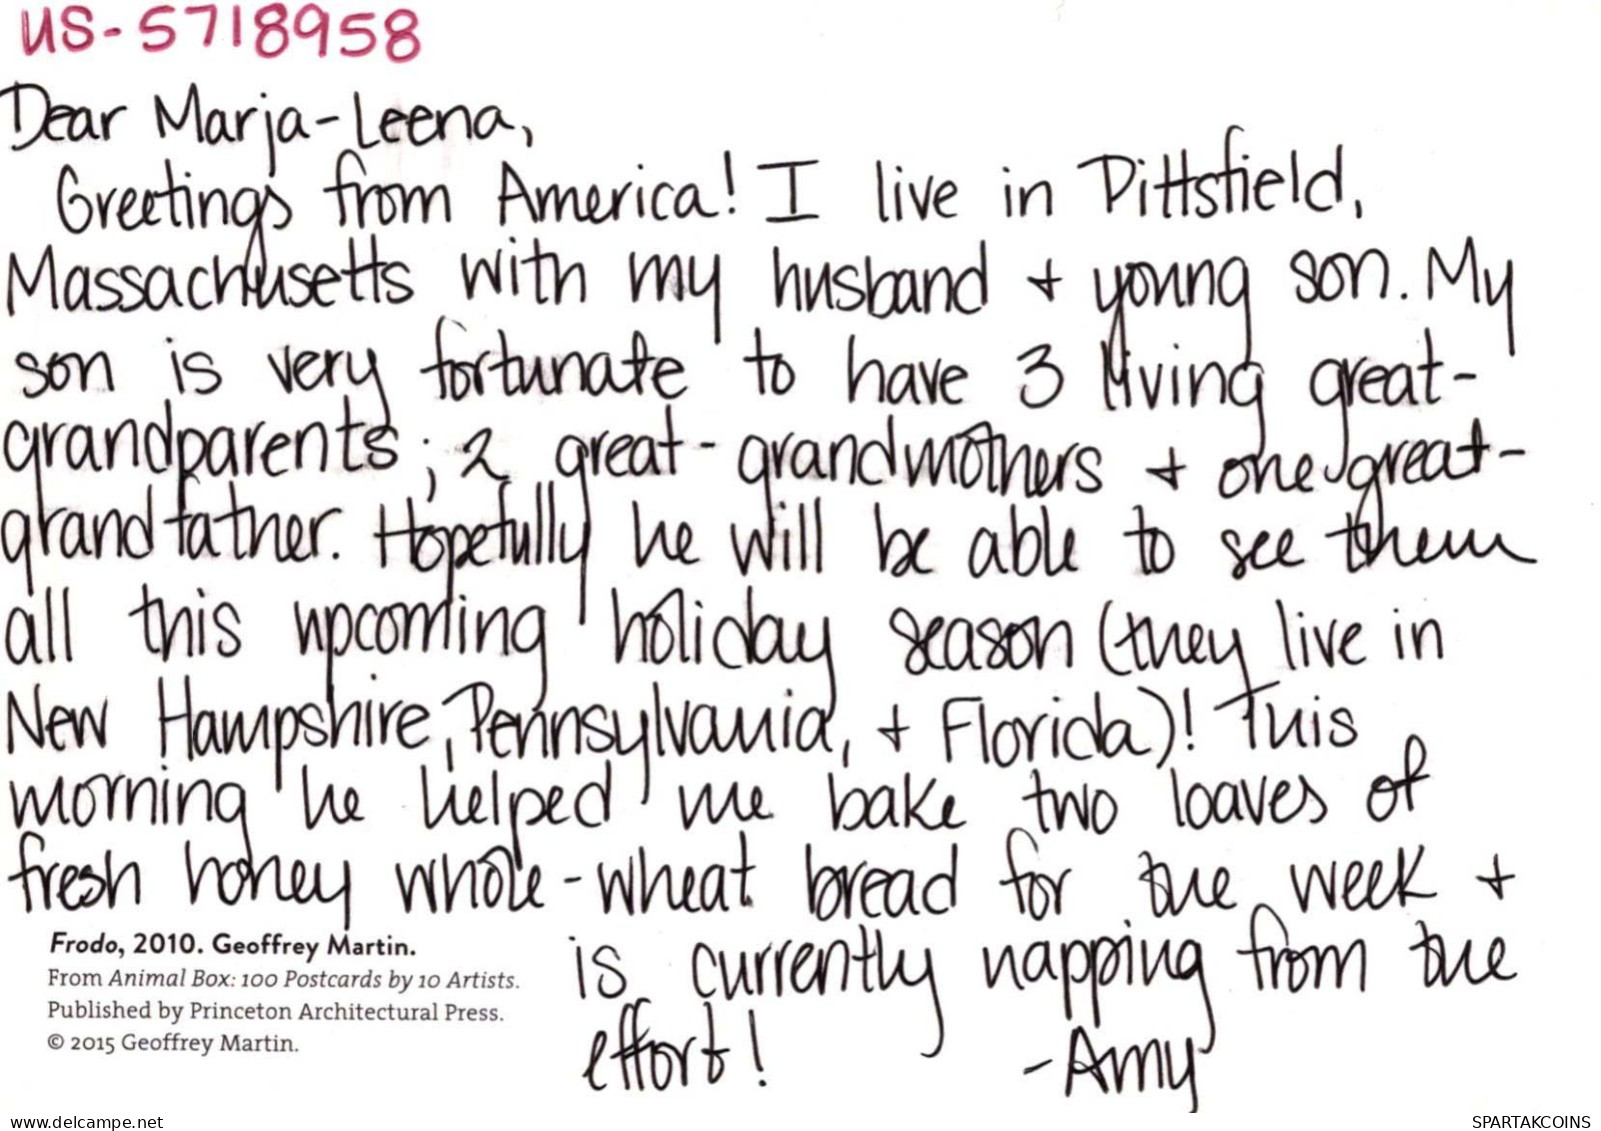 US-5718958
Dear Marja-Leena,
Greetings from America! I live in Pittsfield,
Massachusetts with my husband + young son. My
son is very fortunate to have 3 living great-
grandparents; 2 great-grandmothers + one great-
grandfather. Hopefully he will be able to see them
all this upcoming holiday season (they live in
New Hampshire, Pennsylvania, + Florida)! This
morning he helped me bake two loaves of
fresh honey whole-wheat bread for the week +
is currently napping from the
effort! -Amy
Frodo, 2010. Geoffrey Martin.
From Animal Box: 100 Postcards by 10 Artists.
Published by Princeton Architectural Press.
© 2015 Geoffrey Martin.
delcampe.net
SPARTAKCOINS